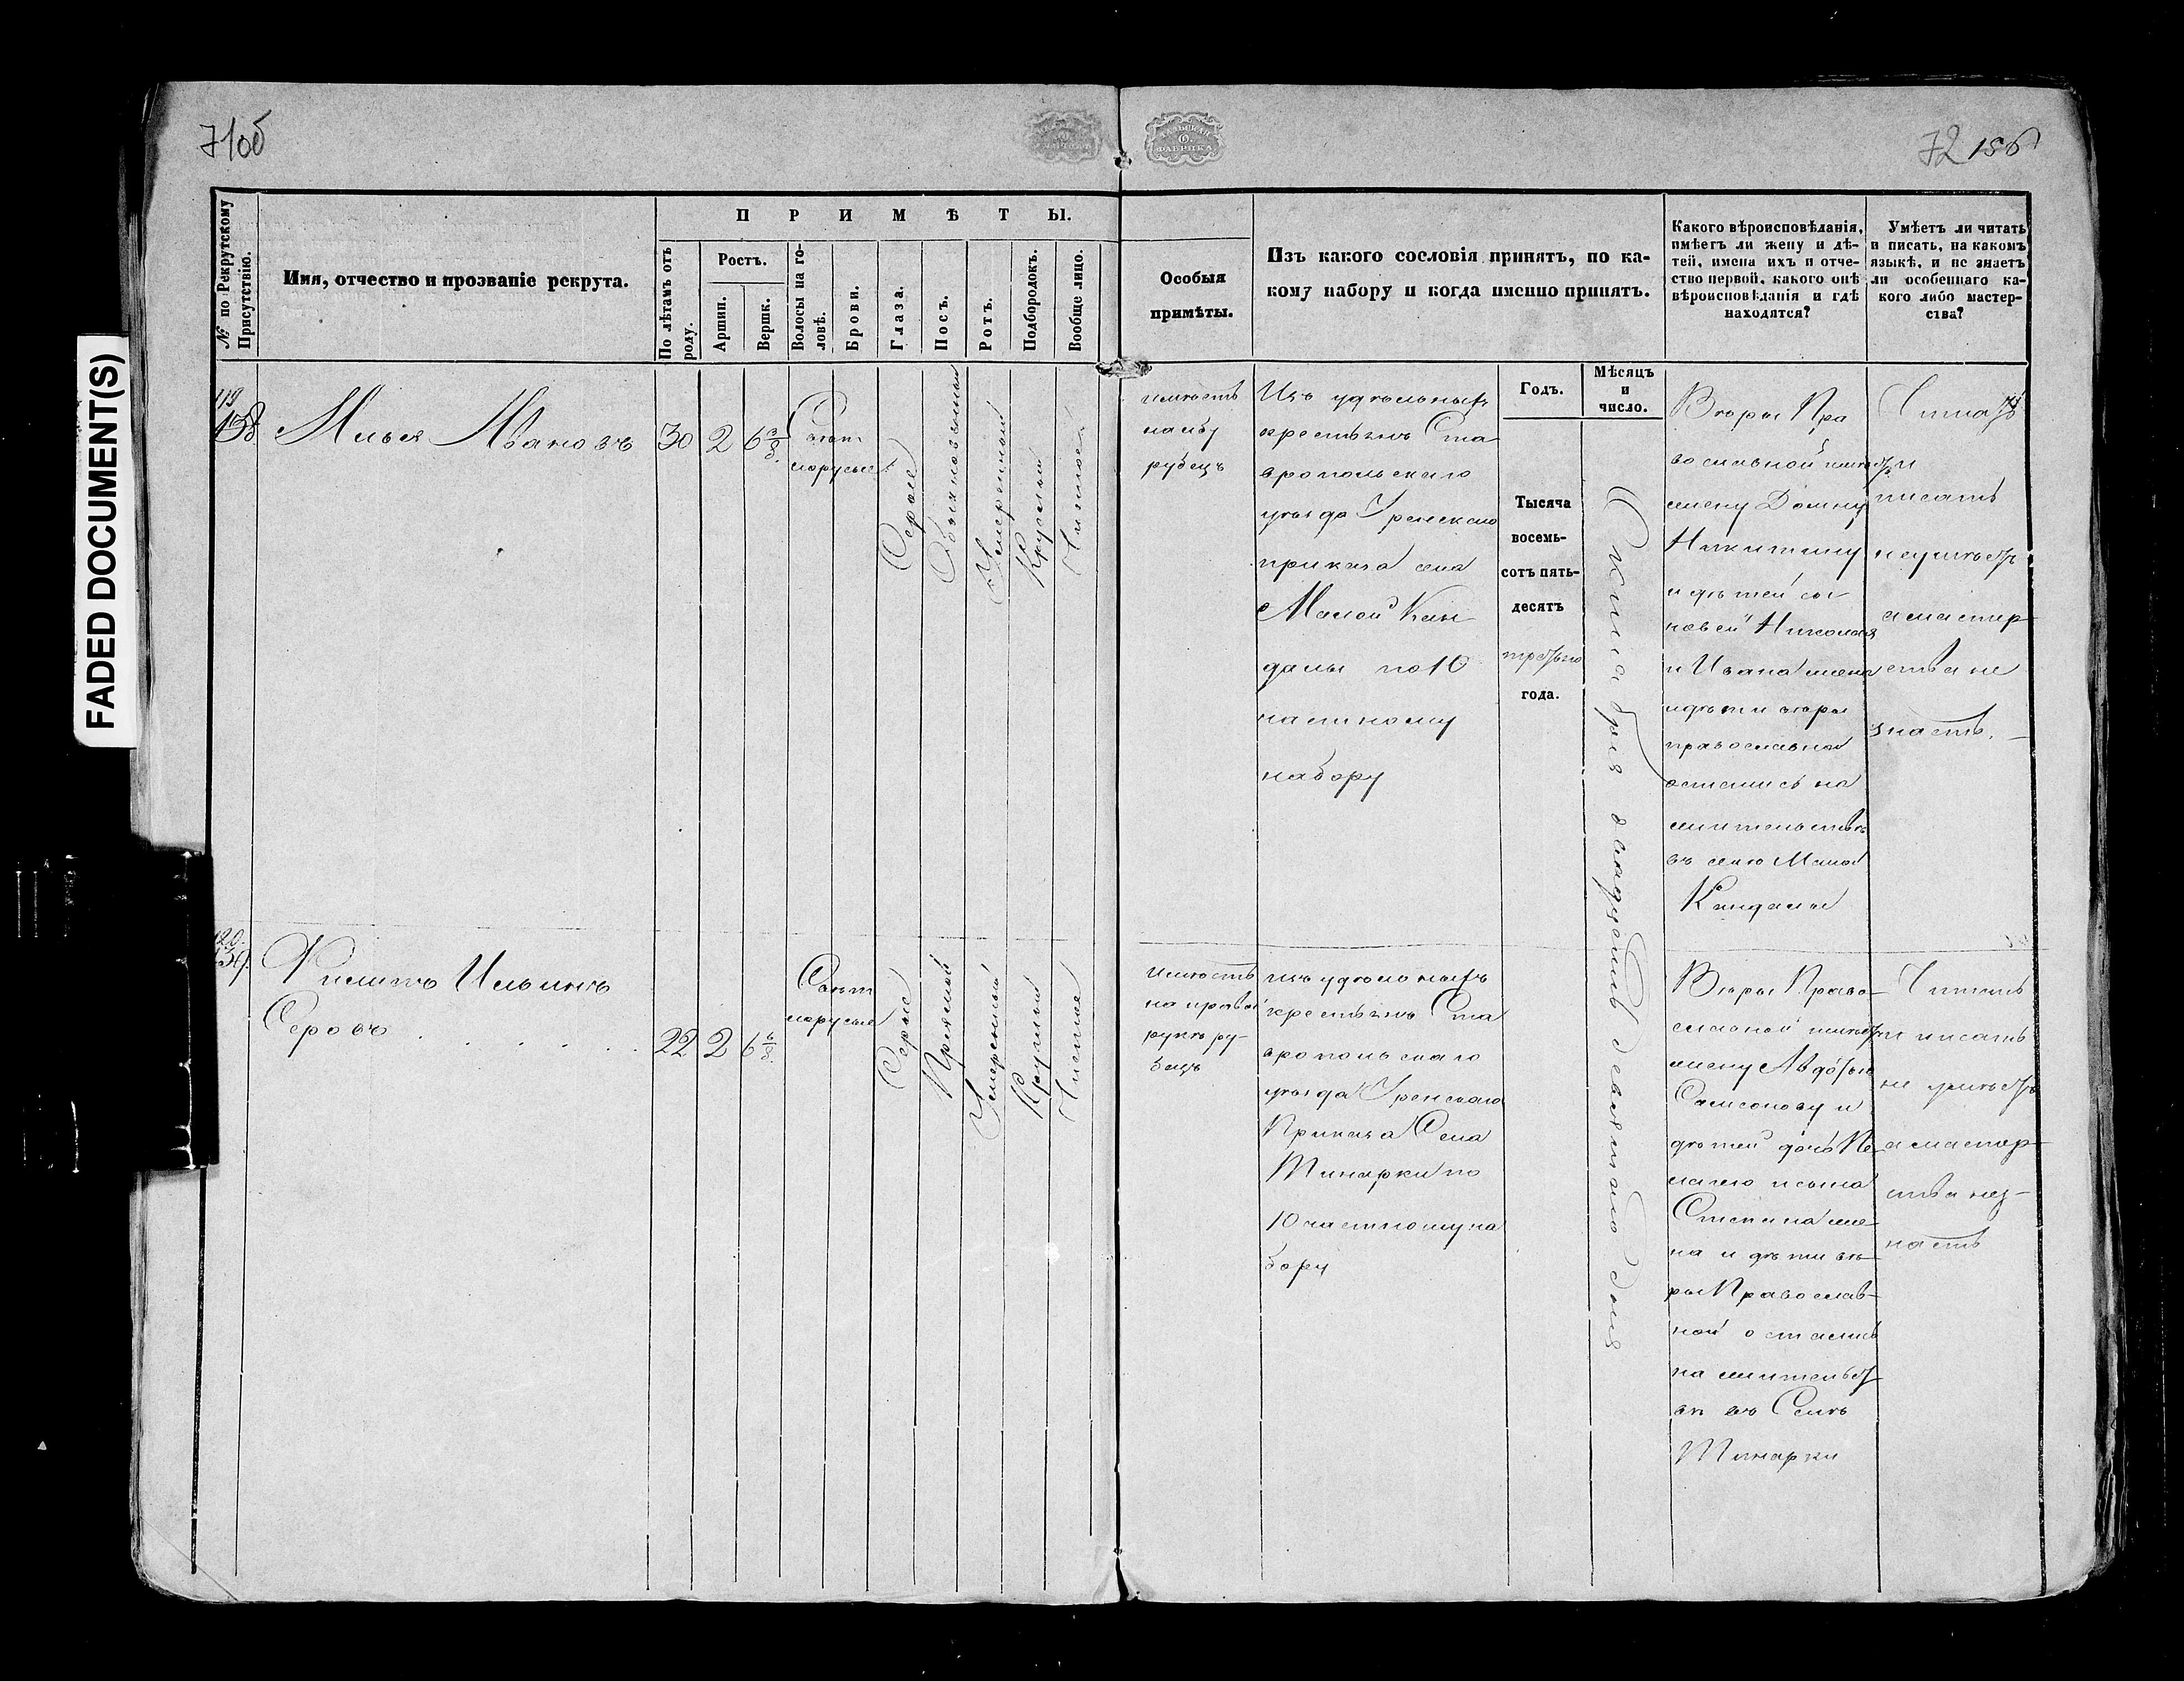 71об
72 156
FADED DOCUMENT(S)
ТАЛЬСКАЯ
ФАБРИКА
№ по Рекрутскому Присутствію.
Имя, отчество и прозваніе рекрута.
ПРИМѢТЫ.
По лѣтамъ отъ роду.
Ростъ.
Аршин.
Вершк.
Волосы на головѣ.
Брови.
Глаза.
Носъ.
Ротъ.
Подбородокъ.
Вообще лицо.
Особыя
примѣты.
Изъ какого сословія принятъ, по ка-
кому набору и когда именно принятъ.
Какого вѣроисповѣданія,
имѣетъ ли жену и дѣ-
тей, имена ихъ и отче-
ство первой, какого онѣ
вѣроисповѣданія и гдѣ
находятся?
Умѣетъ ли читать
и писать, на какомъ
языкѣ, и не знаетъ
ли особеннаго ка-
кого либо мастер-
ства?
Годъ.
Мѣсяцъ
и
число.
119
138
Илья Ивановъ
30
2
6
Свѣт
лорусые
Серые
Обыкновенный
Умеренный
Круглый
Чистое
имѣетъ
на лбу
рубецъ
Изъ удѣльныхъ
крестьянъ Ста
вропольскаго
уѣзда Уренскаго
приказа села
Малой Кан
далы по 10
частному
набору
Тысяча
восемь-
сотъ пять-
десятъ
третьяго
года.
Октября двадцать девятаго дня
Вѣры Пра
вославной имѣетъ
жену Домну
Никитину
и дѣтей сы
новей Николая
и Ивана жена
и дѣти вѣры
православной
остались на
жительствѣ
въ селѣ Малой
Кандалы
Читать
и
писать
неумѣетъ
а мастер
ства не
знаетъ.
120.
139.
Филипъ Ильинъ
Серовъ
22
2
6 6/8
Свѣт
лорусые
Серые
Прямой
Умеренный
Круглый
Чистое
имѣетъ
на правой
рукѣ ру-
бецъ
изъ удѣльныхъ
крестьянъ Ста
вропольскаго
уѣзда Уренскаго
Приказа Села
Тинарки по
10 частному на
бору
Вѣры Право-
славной имѣетъ
жену Авдотью
Самсонову и
дѣтей дочь Пе
лагею и сына
Степана же
на и дѣти вѣ-
ры Православ-
ной остались
на жительст
вѣ въ Селѣ
Тинарки
Читать
и писать
не умѣетъ
а мастер-
ства нез-
наетъ